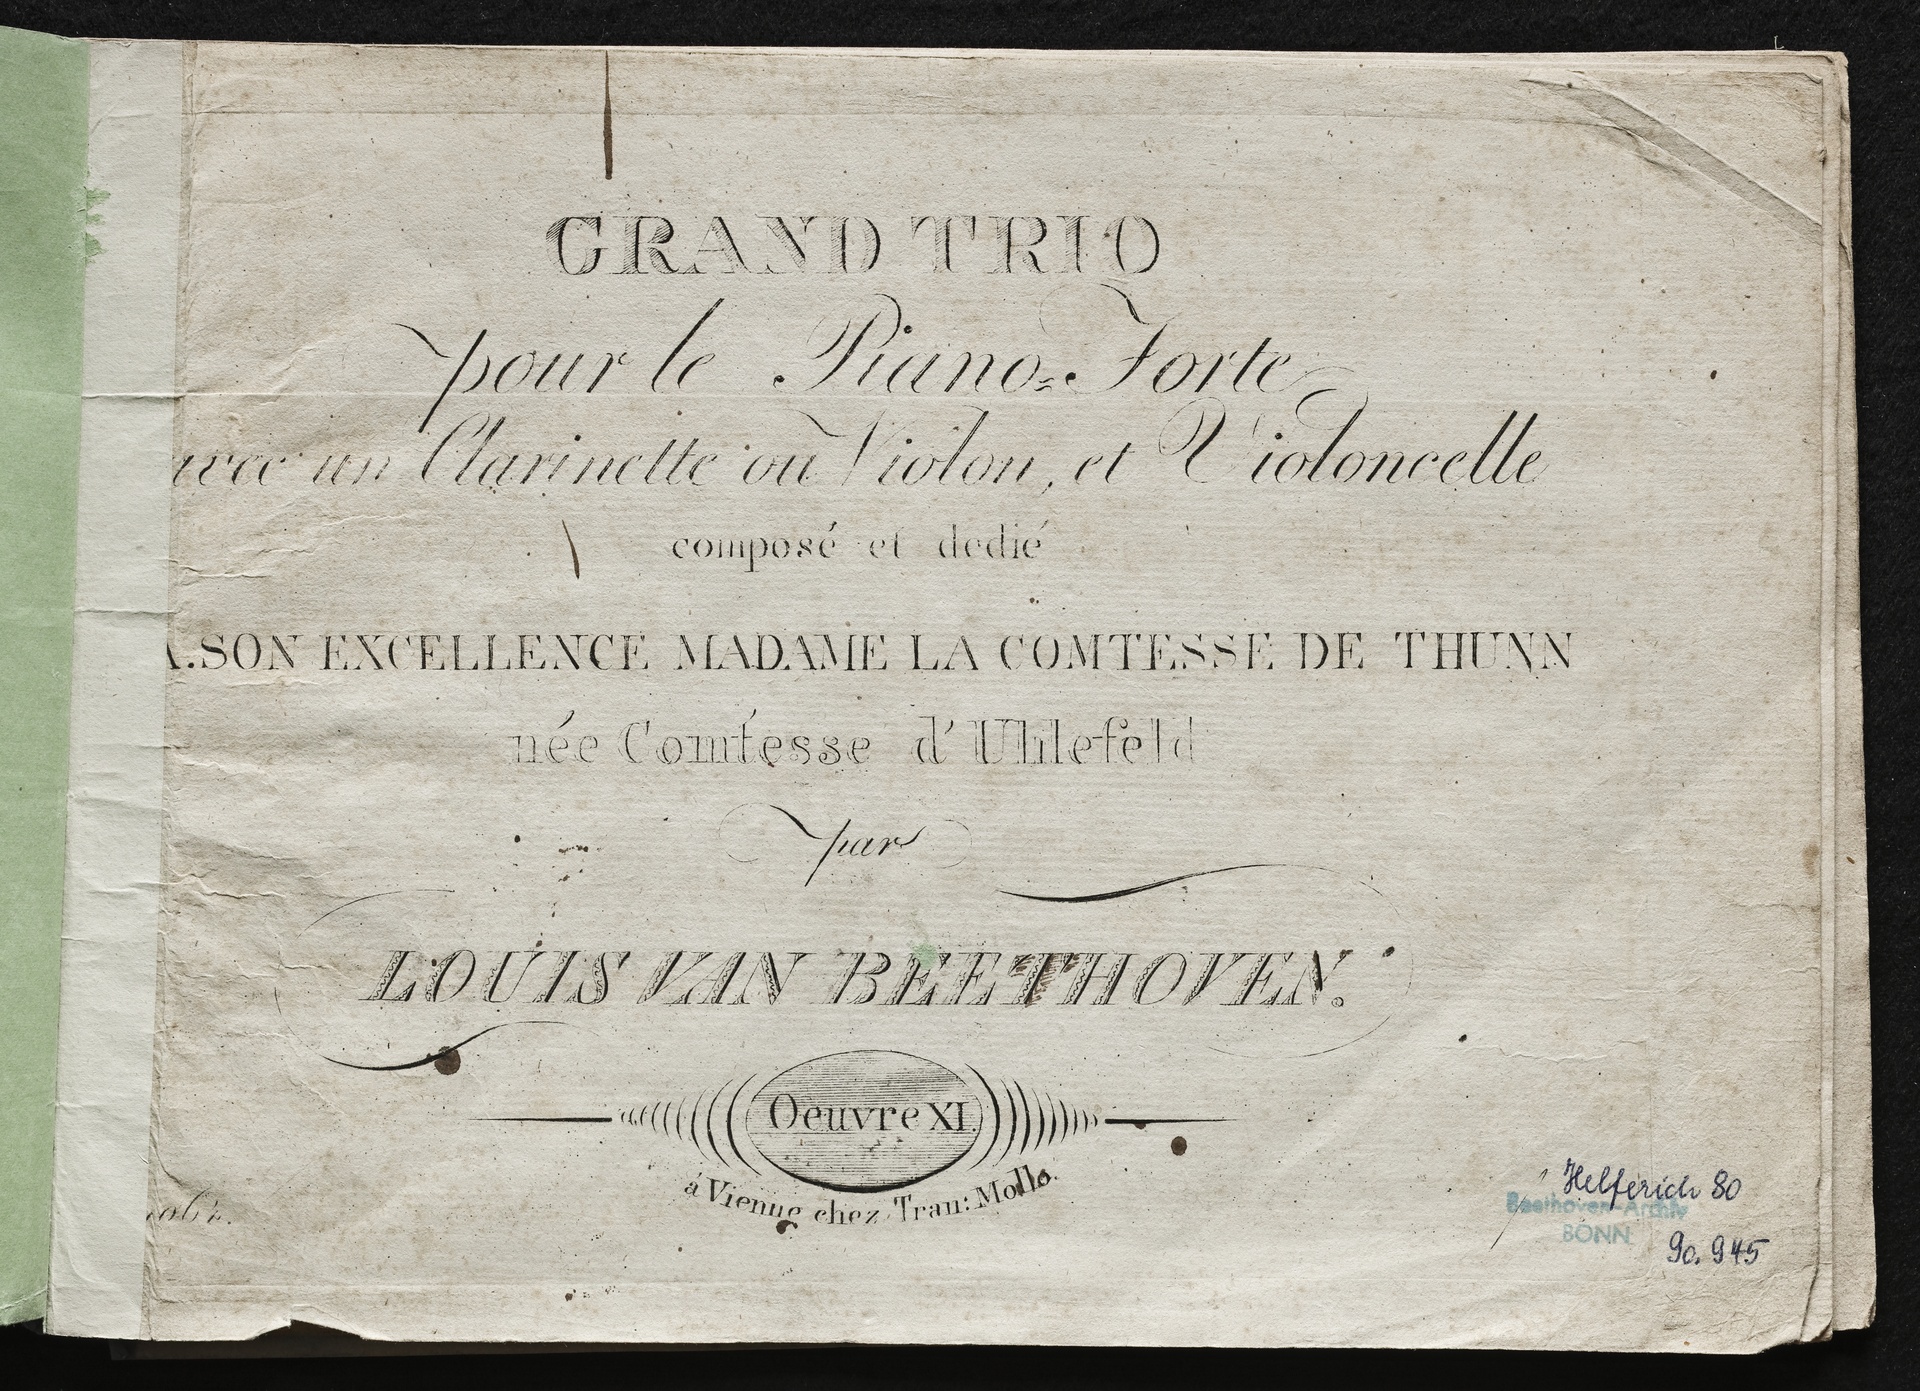 GRAND TRIO
pour le Piano=Forte
avec un Clarinette ou Violon, et Violoncelle
composé et dedié
A.SON EXCELLENCE MADAME LA COMTESSE DE THUNN
née Comtesse d'Uhlefeld
par
LOUIS VAN BEETHOVEN.
Oeuvre XI.
à Vienne chez Tran: Mollo.
Helferich 80
Beethoven-Archiv
BONN
90. 945